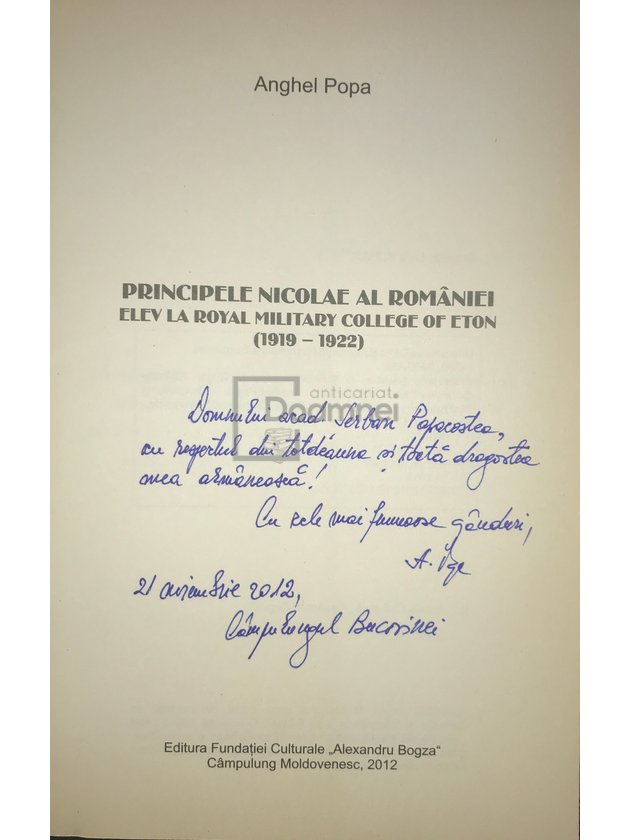 Anghel Popa
PRINCIPELE NICOLAE AL ROMÂNIEI
ELEV LA ROYAL MILITARY COLLEGE OF ETON
(1919 – 1922)
anticariat
Doamnei
Domnului acad Șerban Papacostea,
cu respectul din totdeauna și toată dragostea
mea armânească!
Cu cele mai frumoase gânduri,
A.
21 noiembrie 2012,
Câmpulungul Bucovinei
Editura Fundației Culturale „Alexandru Bogza“
Câmpulung Moldovenesc, 2012